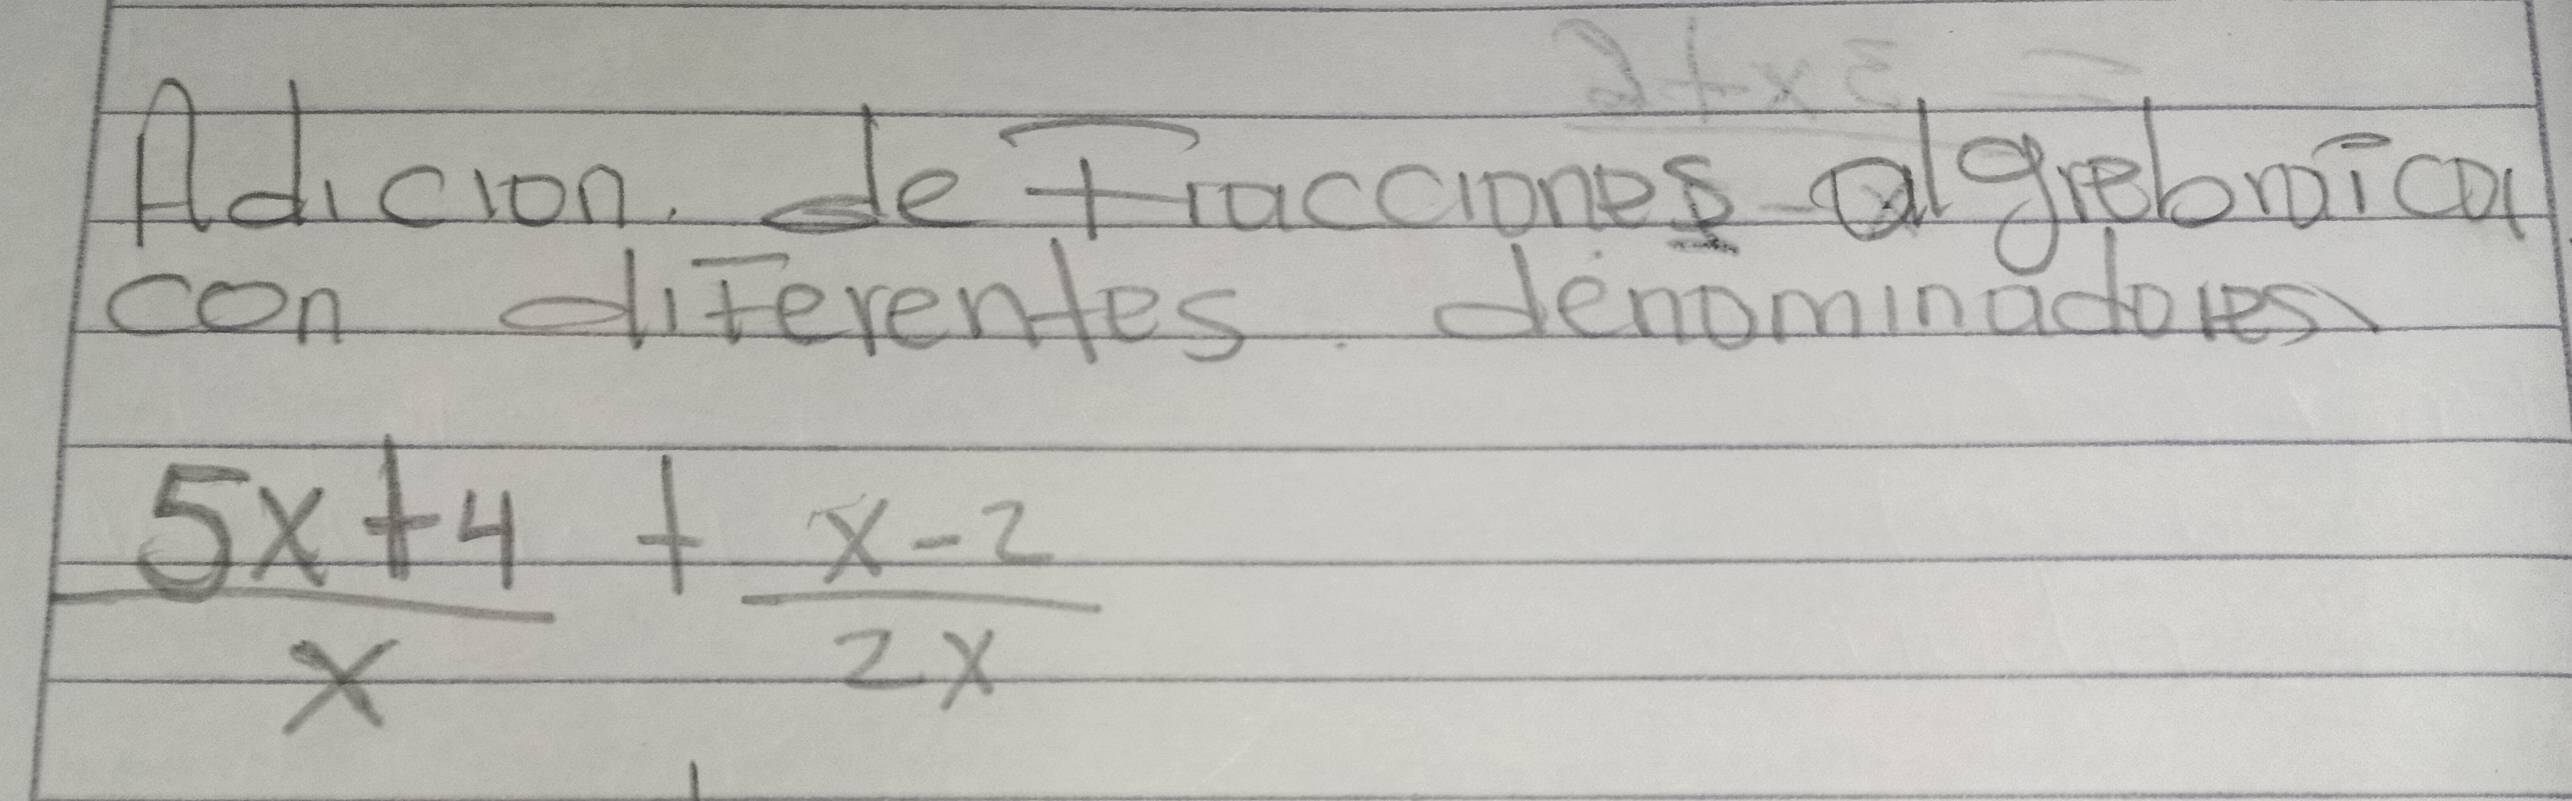 Adicion. de Fracciones algrebraica
con diferentes. denominadores
5x+4 + x-2
x 2x